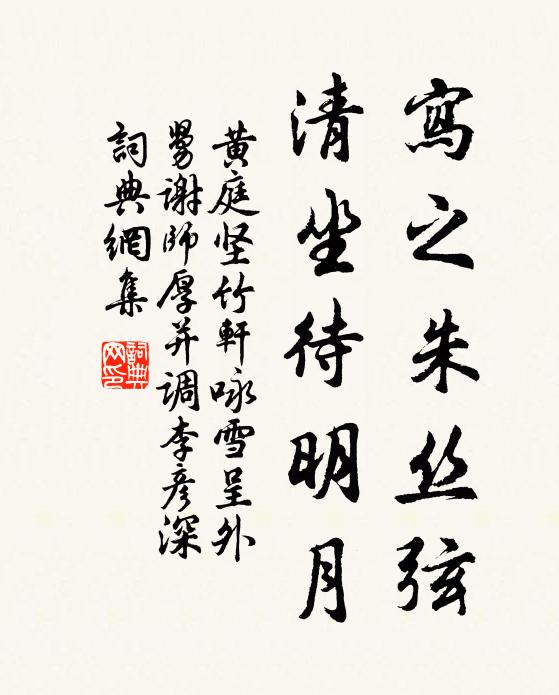 寫之朱丝弦
清坐待明月
黄庭坚竹軒咏雪呈外
舅謝師厚并调李彦深
詞典網集
詞典网印